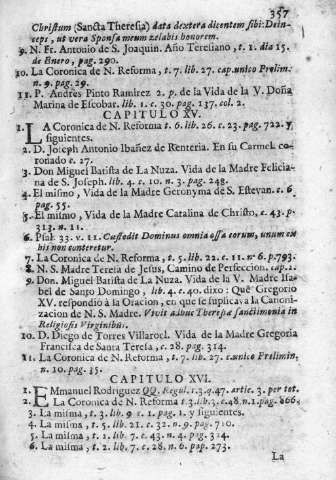 357
Christum (Sancta Theresia) data dextera dicentem sibi: Dein-
ceps, ut vera Sponsa meum zelabis honorem.
9. N. Fr. Antonio de S. Joaquin. Año Teresiano, t. 1. dia 15.
de Enero, pag. 290.
10. La Coronica de N. Reforma, t. 7. lib. 27. cap. unico Prelim.
n. 9. pag. 29.
11. P. Andres Pinto Ramirez 2. p. de la Vida de la V. Doña
Marina de Escobar. lib. 1. c. 30. pag. 137. col. 2.
CAPITULO XV.
1. LA Coronica de N. Reforma t. 6. lib. 26. c. 23. pag. 722. y
siguientes.
2. D. Joseph Antonio Ibañez de Renteria. En su Carmel. co-
ronado c. 27.
3. Don Miguel Batista de La Nuza. Vida de la Madre Felicia-
na de S. Joseph. lib. 4. c. 10. n. 3. pag. 248.
4. El mismo, Vida de la Madre Geronyma de S. Estevan. c. 6
pag. 55.
5. El mismo, Vida de la Madre Catalina de Christo, c. 43. p.
313. n. 11.
6. Psal. 33. v. 11. Custodit Dominus omnia ossa eorum, unum ex
his non conteretur.
7. La Coronica de N. Reforma, t. 5. lib. 22. c. 11. n. 6. p. 793.
8. N. S. Madre Teresa de Jesus, Camino de Perfeccion. cap. 2.
9. Don. Miguel Batista de La Nuza. Vida de la V. Madre Isa-
bel de Santo Domingo, lib. 4. c. 40. dixo: Que Gregorio
XV. respondiò à la Oracion, en que se suplicava la Canoni-
zacion de N. S. Madre. Vivit adhuc Theresæ sanctimonia in
Religiosis Virginibus.
10. D. Diego de Torres Villaroel. Vida de la Madre Gregoria
Francisca de Santa Teresa, c. 28. pag. 314.
11. La Coronica de N. Reforma, t. 7. lib. 27. c. unico Prelimin.
n. 10. pag. 15.
CAPITULO XVI.
1. EMmanuel Rodriguez QQ. Regul. t. 3. q. 47. artic. 3. per tot.
2. La Coronica de N. Reforma t. 3. lib. 3. c. 48. n. 1. pag. 866.
3. La misma, t. 3. lib. 9 c. 1. pag. 1. y siguientes.
4. La misma, t. 5. lib. 21. c. 32. n. 9. pag. 710.
5. La misma, t. 1. lib. 7. c. 43. n. 4. pag. 324.
6. La misma, t. 2. lib. 7. c. 28. n. 6. pag. 273.
La